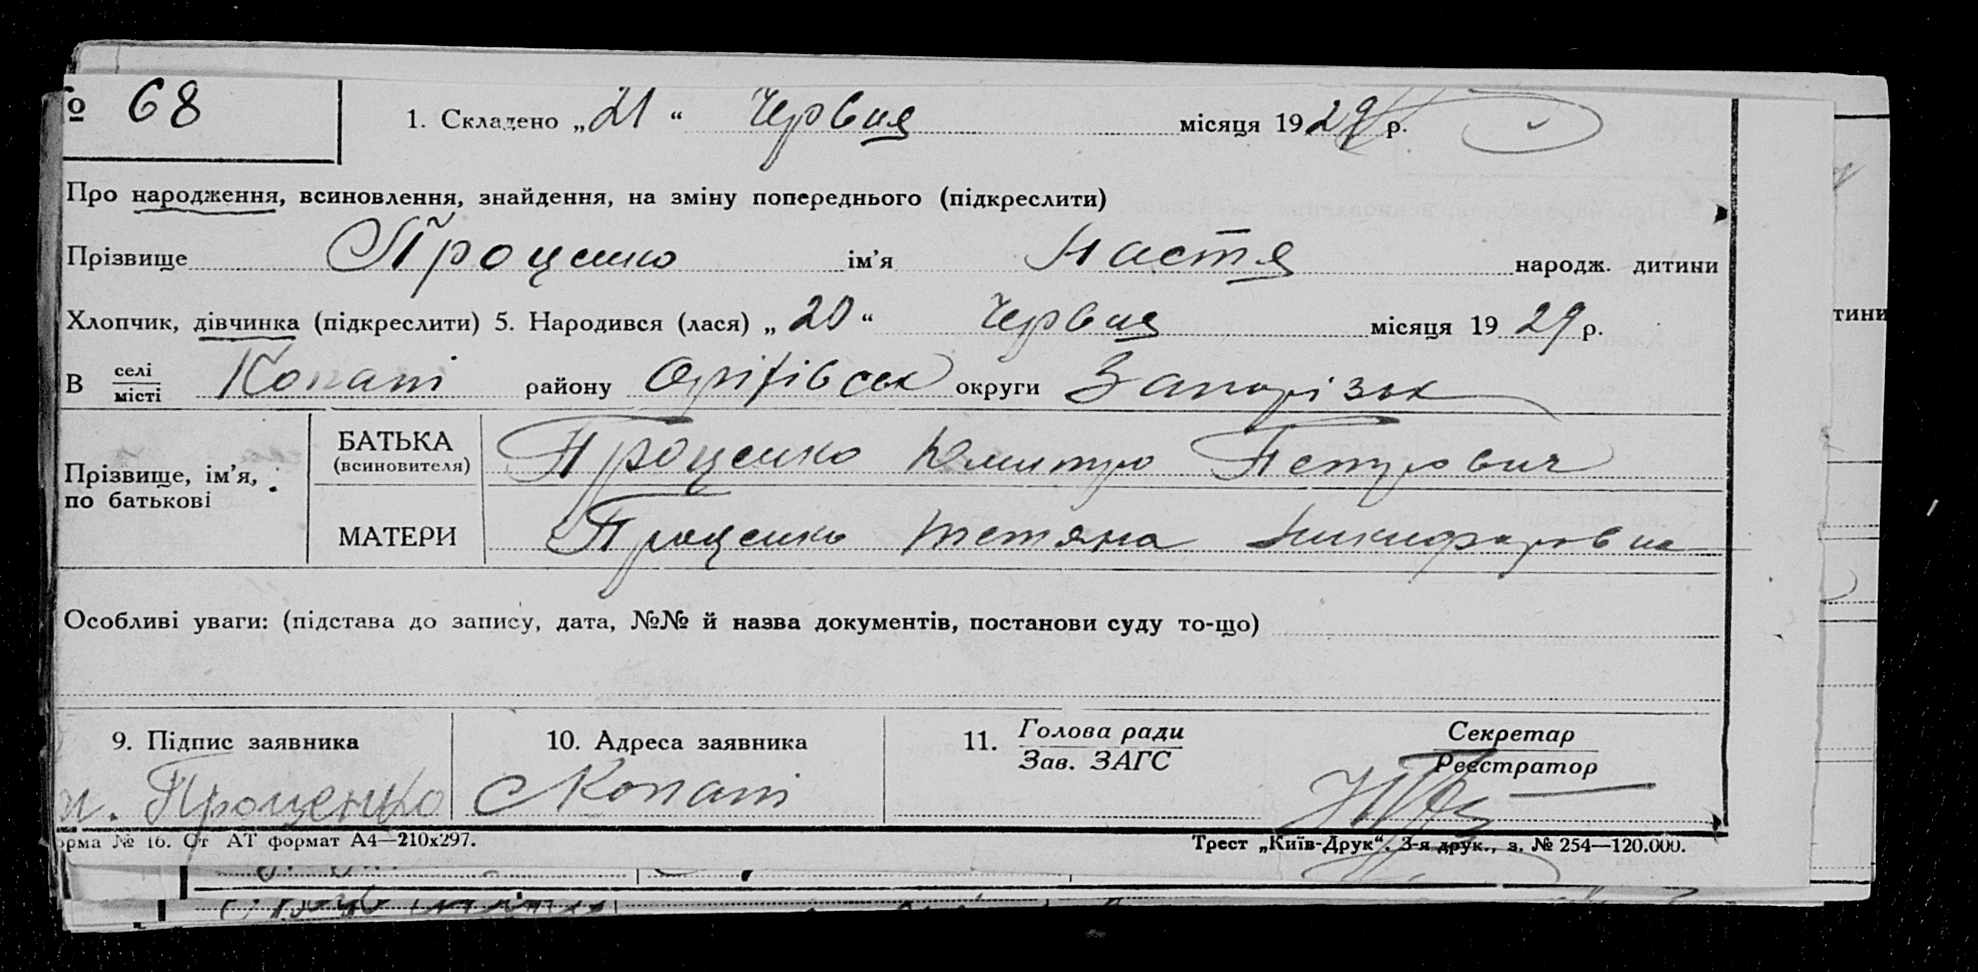 № 68
1. Складено „21“ Червня місяця 1929 р.
Про народження, всиновлення, знайдення, на зміну попереднього (підкреслити)
Прізвище Проценко ім’я Настя народж. дитини
Хлопчик, дівчинка (підкреслити) 5. Народився (лася) „20“ Червня місяця 1929 р.
В селі місті Копані району Оріхівськ округи Запорізьк
Прізвище, ім’я, по батькові
БАТЬКА (всиновителя) Проценко Дмитро Петрович
МАТЕРИ Проценко Тетяна Никифоровна
Особливі уваги: (підстава до запису, дата, №№ й назва документів, постанови суду то-що)
9. Підпис заявника 10. Адреса заявника 11. Голова ради Зав. ЗАГС Секретар Реєстратор
Проценко с Копані
орма № 16. Ст АТ формат А4—210х297. Трест „Київ-Друк“. 3-я друк., з. № 254—120.000.
тини